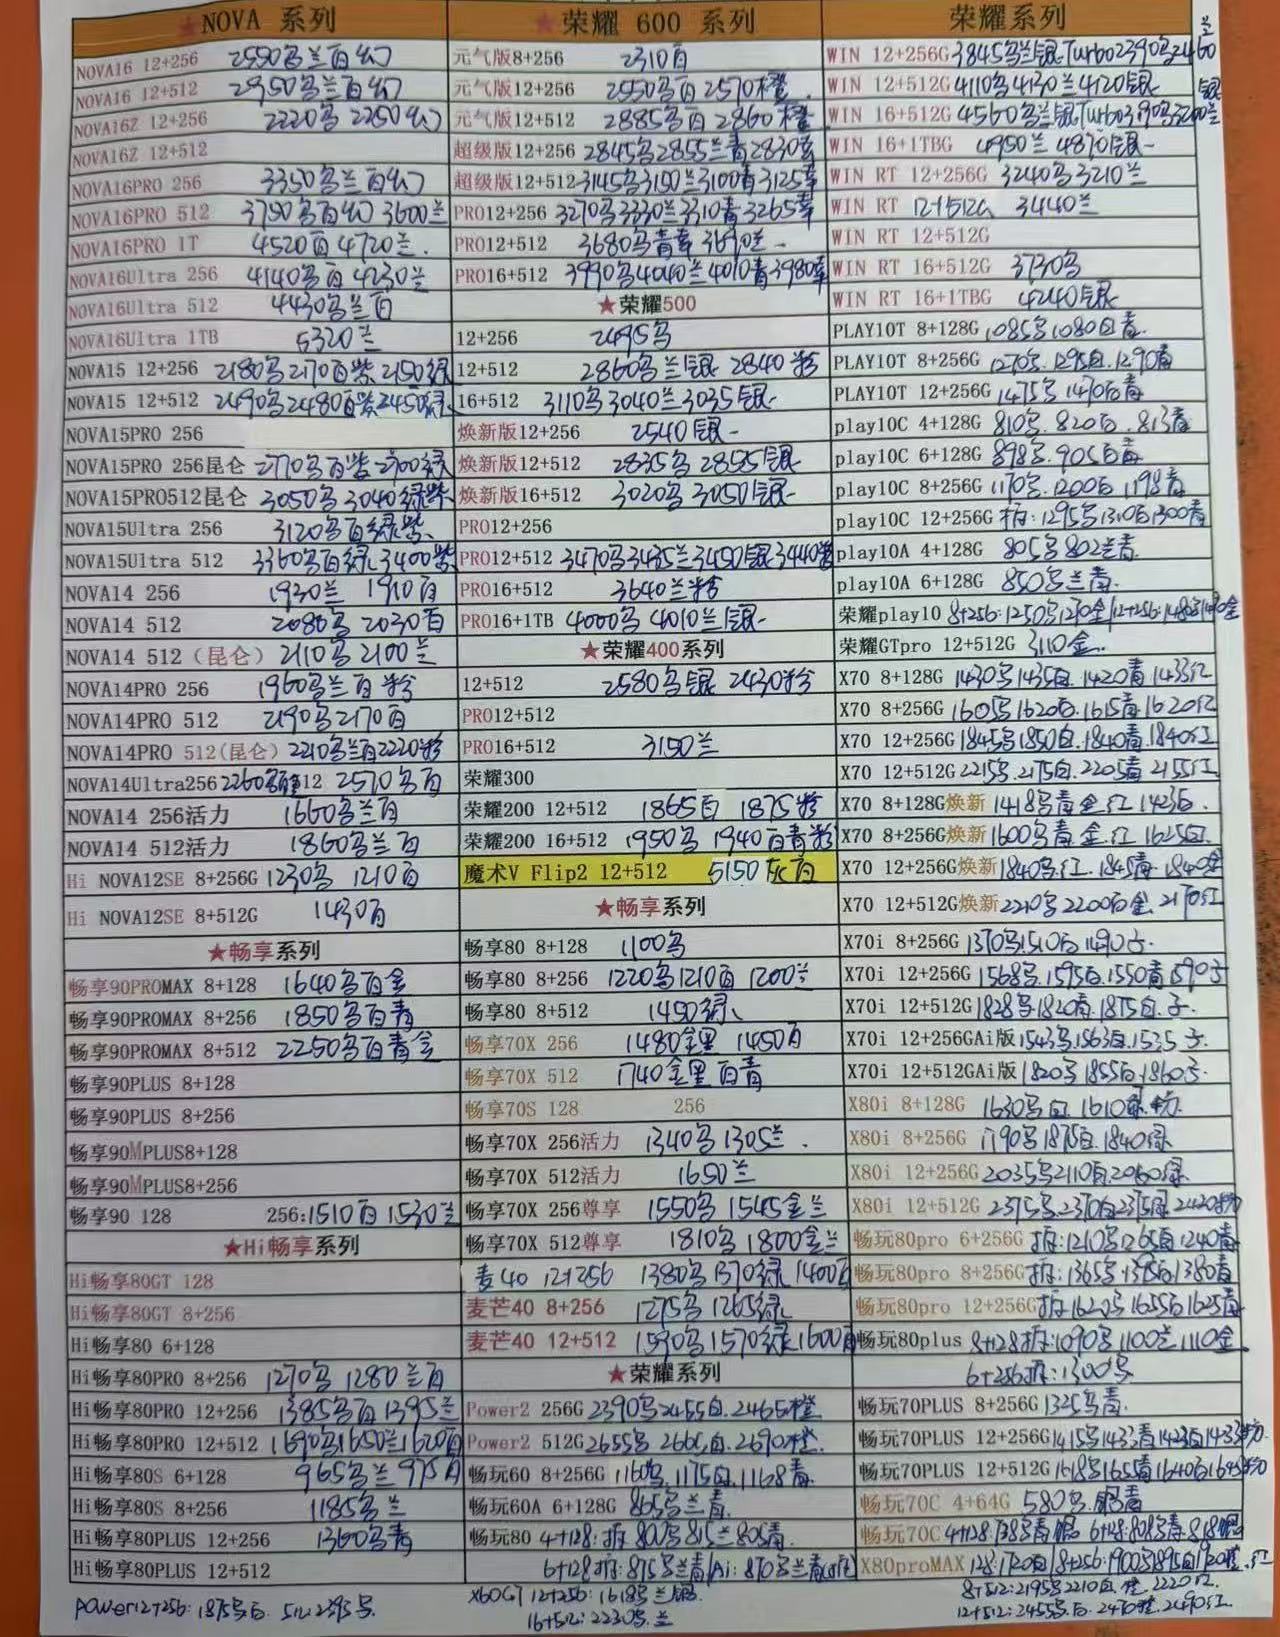 ★NOVA 系列
NOVA16 12+256 2550乌兰百幻
NOVA16 12+512 2950乌兰百幻
NOVA16Z 12+256 2220乌 2250幻
NOVA16Z 12+512
NOVA16PRO 256 3350乌兰百幻
NOVA16PRO 512 3750乌百幻 3600兰
NOVA16PRO 1T 4520百 4720兰
NOVA16Ultra 256 4140乌百 4230兰
NOVA16Ultra 512 4430乌兰百
NOVA16Ultra 1TB 5320兰
NOVA15 12+256 2180乌2170百紫2150绿
NOVA15 12+512 2490乌2480百紫2450绿
NOVA15PRO 256
NOVA15PRO 256昆仑 2770乌百紫2700绿
NOVA15PRO512昆仑 3050乌3040绿紫
NOVA15Ultra 256 3120乌百绿紫
NOVA15Ultra 512 3360乌百绿3400紫
NOVA14 256 1930兰 1910百
NOVA14 512 2080乌 2030百
NOVA14 512（昆仑）2110乌2100兰
NOVA14PRO 256 1960乌兰百粉
NOVA14PRO 512 2190乌2170百
NOVA14PRO 512(昆仑) 2210乌兰百2220粉
NOVA14Ultra256 2260乌 12 2570乌百
NOVA14 256活力 1660乌兰百
NOVA14 512活力 1860乌兰百
Hi NOVA12SE 8+256G 1230乌 1210百
Hi NOVA12SE 8+512G 1430百
★畅享系列
畅享90PROMAX 8+128 1640乌百金
畅享90PROMAX 8+256 1850乌百青
畅享90PROMAX 8+512 2250乌百青金
畅享90PLUS 8+128
畅享90PLUS 8+256
畅享90MPLUS8+128
畅享90MPLUS8+256
畅享90 128 256:1510百1530兰
★Hi畅享系列
Hi畅享80GT 128
Hi畅享80GT 8+256
Hi畅享80 6+128
Hi畅享80PRO 8+256 1270乌 1280兰百
Hi畅享80PRO 12+256 1385乌百1395兰
Hi畅享80PRO 12+512 1690乌1650兰1620百
Hi畅享80S 6+128 965乌兰 975百
Hi畅享80S 8+256 1185乌兰
Hi畅享80PLUS 12+256 1360乌青
Hi畅享80PLUS 12+512
power12+256: 1875乌百. 512:2395乌.
★荣耀 600 系列
元气版8+256 2310百
元气版12+256 2550乌百2570橙
元气版12+512 2885乌百2860橙
超级版12+256 2845乌2855兰青2830幸
超级版12+512 3145乌3150兰3100青3125幸
PRO12+256 3270乌3330兰3310青3265幸
PRO12+512 3680乌青幸3690兰
PRO16+512 3990乌4040兰4010青3980幸
★荣耀500
12+256 2495乌
12+512 2860乌兰银 2840粉
16+512 3110乌3040兰3035银
焕新版12+256 2540银
焕新版12+512 2835乌 2855银
焕新版16+512 3020乌 3050银
PRO12+256
PRO12+512 3470乌3435兰3450银3440粉
PRO16+512 3640兰粉
PRO16+1TB 4000乌 4010兰银
★荣耀400系列
12+512 2580乌银 2430粉
PRO12+512
PRO16+512 3150兰
荣耀300
荣耀200 12+512 1865百 1875粉
荣耀200 16+512 1950乌 1940百青粉
魔术V Flip2 12+512 5150灰百
★畅享系列
畅享80 8+128 1100乌
畅享80 8+256 1220乌1210百 1200兰
畅享80 8+512 1450绿
畅享70X 256 1480金黑 1450百
畅享70X 512 1740金黑百青
畅享70S 128 256
畅享70X 256活力 1340乌1305兰
畅享70X 512活力 1650兰
畅享70X 256尊享 1550乌 1545金兰
畅享70X 512尊享 1810乌 1800金兰
麦40 12+256 1380乌1370绿1400百
麦芒40 8+256 1275乌1265绿
麦芒40 12+512 1590乌1570绿1600百
★荣耀系列
Power2 256G 2390乌2455白.2465橙
Power2 512G 2655乌 2660白.2690橙
畅玩60 8+256G 1160乌.1175白.1168青
畅玩60A 6+128G 865乌兰青
畅玩80 4+128:拆800乌815兰805青
6+128拆:875乌兰青/Ai:870乌兰青
X60GT 12+256: 1618乌兰银
16+512: 2230乌.兰
荣耀系列
WIN 12+256G 3845乌兰银.Turbo2390乌2460兰银
WIN 12+512G 4110乌4130兰4120银
WIN 16+512G 4560乌兰银Turbo3190乌3200兰
WIN 16+1TBG 4950兰 4870银
WIN RT 12+256G 3240乌3210兰
WIN RT 12+512G 3440兰
WIN RT 12+512G
WIN RT 16+512G 3730乌
WIN RT 16+1TBG 4240银
PLAY10T 8+128G 1085乌1080白青
PLAY10T 8+256G 1270乌.1295白.1290青
PLAY10T 12+256G 1475乌 1490白青
play10C 4+128G 810乌.820白.813青
play10C 6+128G 898乌.905白青
play10C 8+256G 1170乌.1200白1198青
play10C 12+256G 拆:1295乌1310白1300青
play10A 4+128G 805乌802兰青
play10A 6+128G 850乌兰青
荣耀play10 8+256:1250乌1210金/12+256:
荣耀GTpro 12+512G 3110金
X70 8+128G 1430乌1435白.1420青1433红
X70 8+256G 1605乌1620白.1615青1620红
X70 12+256G 1845乌1850白.1840青.1840红
X70 12+512G 2215乌.2175白.2205青2155红
X70 8+128G焕新 1418乌青金.红 1423白.
X70 8+256G焕新 1600乌青金.红 1625白.
X70 12+256G焕新 1840乌红.1845青.1840金
X70 12+512G焕新 2210乌2200白金.2170红
X70i 8+256G 1370乌1510白1490子
X70i 12+256G 1568乌.1595白.1550青1590子
X70i 12+512G 1828乌1820青.1875白.子
X70i 12+256GAi版 1543乌1563白.1535子
X70i 12+512GAi版 1820乌1855白1860子
X80i 8+128G 1630乌白.1610绿粉
X80i 8+256G 1790乌1875白.1840绿
X80i 12+256G 2035乌2110白2060绿
X80i 12+512G 2375乌2370白2375绿2420粉
畅玩80pro 6+256G 拆:1210乌1265白1240青
畅玩80pro 8+256G 拆:1365乌1395白1380青
畅玩80pro 12+256G 拆1620乌1655白1625青
畅玩80plus 8+128拆:1090乌1100兰1110金
6+256拆:1300乌
畅玩70PLUS 8+256G 1325乌青
畅玩70PLUS 12+256G 1415乌1433青1423白1433粉
畅玩70PLUS 12+512G 1618乌1655青1640白1645粉
畅玩70C 4+64G 580乌.银青
畅玩70C 4+128:738乌青银 6+128:808乌青818银
X80proMAX 128:1720白/8+256:1900乌1895白1920橙.红
8+512:2195乌2210白.橙.2220红
12+512:2455乌.白.2470橙.2490红